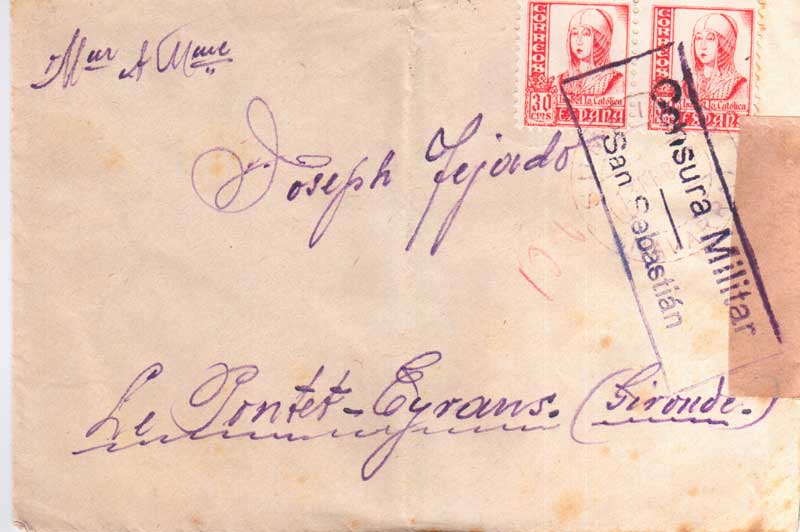 Mur A Mme
Joseph Tejado
Le Pontet-Eyrans. (Gironde.)
CORREOS
30 CTS
Isabel la Católica
ESPAÑA
CORREOS
la Católica
ESPAÑA
Censura Militar
San Sebastián